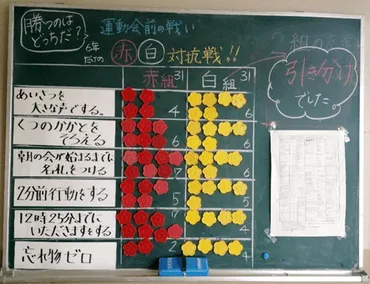 勝つのは
どっちだ?
運動会前の戦い
6年
だけの
赤白対抗戦!!
赤組 31
白組 31
引き分け
でした。
あいさつを
大きな声でする。
4
6
くつのかかとを
そろえる
6
6
朝の会が始まるまでに
名札をつける
7
2分前行動をする
5
5
12時25分までに
いただきますをする
7
4
忘れ物ゼロ
2
4